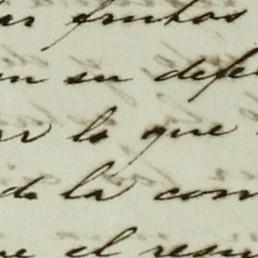 frutos
en su defe
ar lo que
de la con
ue el resu